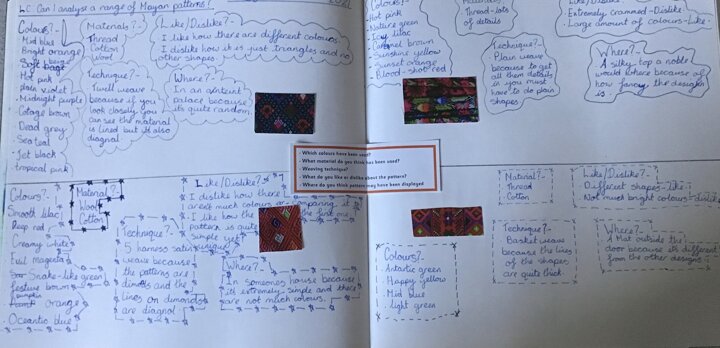 LC: Can I analyst a range of Mayan patterns?
2021
Colours?-
Mid blue
Bright orange
Soft beige
Hot pink
plain violet
Midnight purple
Cotage brown
Dead grey
Sea teal
Jet black
tropical pink
Materials?-
Thread
Cotton
wool
Technique?-
Twill weave
because if you
look closely you
can see the material
is lined but it also
diagnal.
Like/Dislike?-
I like how there are different colours.
I dislike how it is just triangles and no
other shapes.
Where?-
In an
palace because
its quite random.
Colours?-
Hot pink
Nature green
lilac
Caramel brown
Sunshine yellow
Sunset orange
Blood-shot red
Materials
Thread-lots
of details
Technique?-
Plain weave
because to get
all them details
in you must
have to do plain
shapes
Like/Dislike?-
Extremely crammed-Dislike.
Large amount of colours-Like.
Where?-
A silky top a noble
would where because of
how fancy the designs
is.
- Which colours have been used?
- What material do you think has been used?
- Weaving technique?
- What do you like or dislike about the pattern?
- Where do you think pattern may have been displayed
Colours?-
Smooth lilac
Deep red
Creamy white
Evil magenta
Snake-like green
festive brown
pumpkin
orange
Oceantic blue
Material?-
Wool
Cotton
Technique?-
5 harness satin
weave because
the patterns are
dimonds and the
lines on dimonds
are diagnol.
Like/Dislike?-
I dislike how there
arent much colours comparing it
I like how the the first one
pattern is quite unique
simple yet
Where?-
In someones house because
its extremely simple and there
are not much colours.
Colours?-
Antartic green
Happy yellow
Mid blue
light green
Material?-
Thread
Cotton
Technique?-
Basket weave
because the lines
of the shapes
are quite thick.
Like/Dislike?-
Different shapes-like
Not much bright colours-dislike
Where?-
A Mat outside the
door because its different
from the other designs